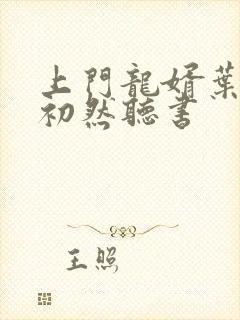 上門龍婿葉
初然聽書
王照